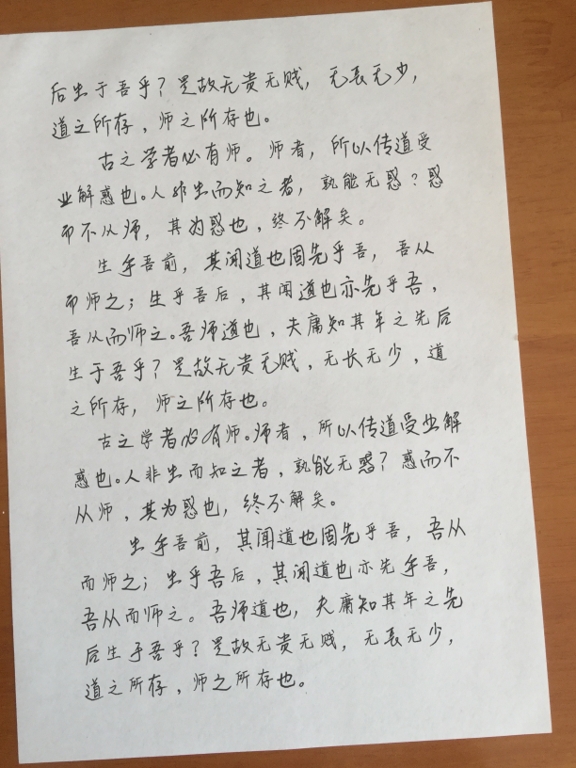 后生于吾乎？是故无贵无贱，无长无少，
道之所存，师之所存也。
古之学者必有师。师者，所以传道受
业解惑也。人非生而知之者，孰能无惑？惑
而不从师，其为惑也，终不解矣。
生乎吾前，其闻道也固先乎吾，吾从
而师之；生乎吾后，其闻道也亦先乎吾，
吾从而师之。吾师道也，夫庸知其年之先后
生于吾乎？是故无贵无贱，无长无少，道
之所存，师之所存也。
古之学者必有师。师者，所以传道受业解
惑也。人非生而知之者，孰能无惑？惑而不
从师，其为惑也，终不解矣。
生乎吾前，其闻道也固先乎吾，吾从
而师之；生乎吾后，其闻道也亦先乎吾，
吾从而师之。吾师道也，夫庸知其年之先
后生于吾乎？是故无贵无贱，无长无少，
道之所存，师之所存也。